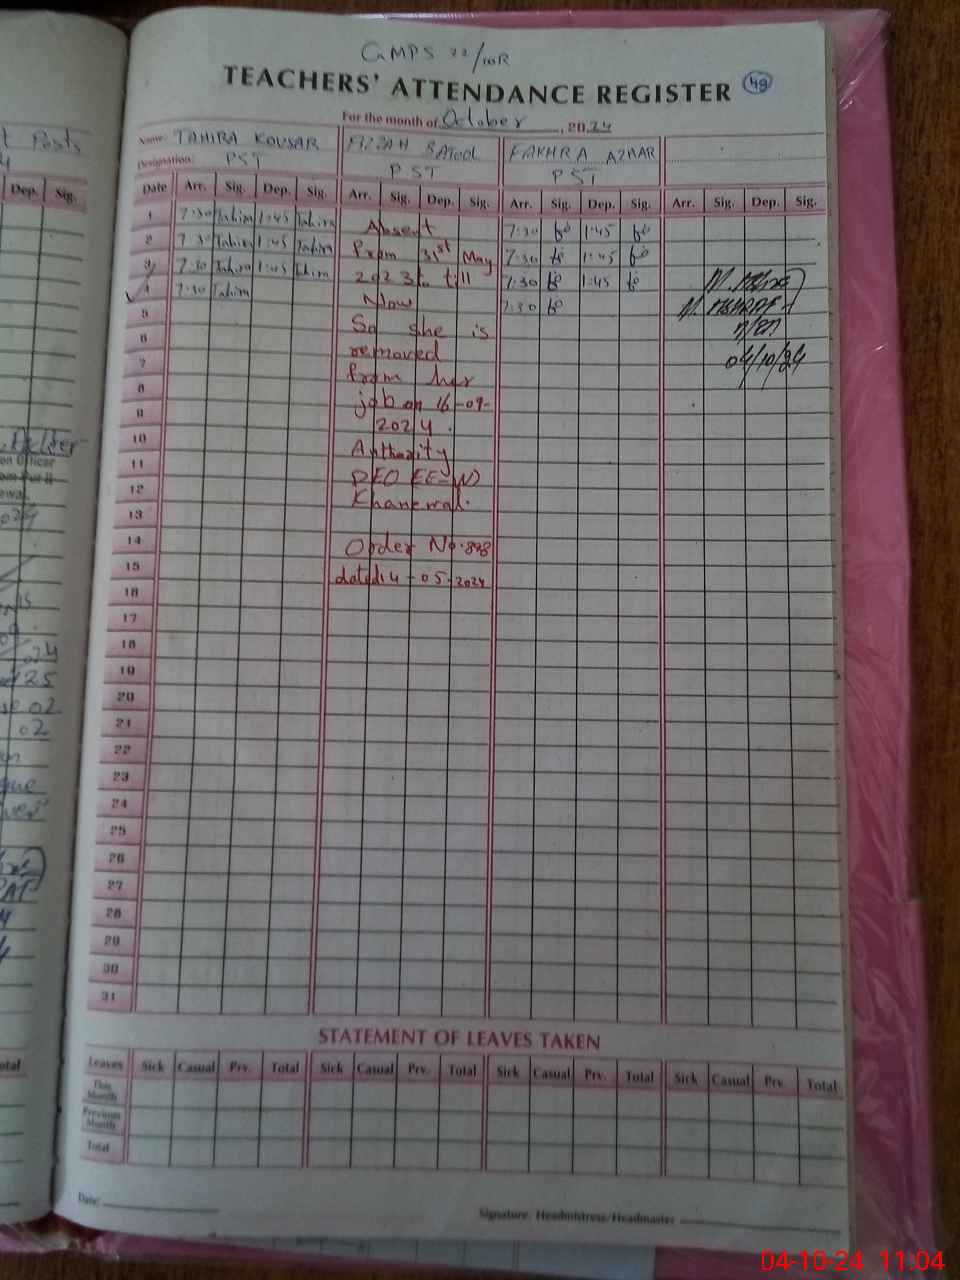 GMPS 22/10R
TEACHERS' ATTENDANCE REGISTER 49
For the month of October, 2024
Name: TAHIRA KOUSAR FIZZAH BATOOL FAKHRA AZHAR
Designation: PST PST PST
Date Arr. Sig. Dep. Sig. Arr. Sig. Dep. Sig. Arr. Sig. Dep. Sig. Arr. Sig. Dep. Sig.
1 7:30 Tahira 1:45 Tahira Absent 7:30 1:45
2 7:30 Tahira 1:45 Tahira From 31st May 7:30 1:45
3 7:30 Tahira 1:45 Tahira 2023 till 7:30 1:45
4 7:30 Tahira Now 7:30
5 So she is
6 removed
7 from her 04/10/24
8 job on 16-09-
9 2024.
10 Authority
11 DEO EE-W
12 Khanewal.
13
14 Order No. 898
15 dated 14-05-2024
16
17
18
19
20
21
22
23
24
25
26
27
28
29
30
31
STATEMENT OF LEAVES TAKEN
Leaves Sick Casual Prv. Total Sick Casual Prv. Total Sick Casual Prv. Total Sick Casual Prv. Total
This Month
Previous Month
Total
Date:
Signature: Headmistress/Headmaster
t Posts
Dep. Sig.
04-10-24 11:04